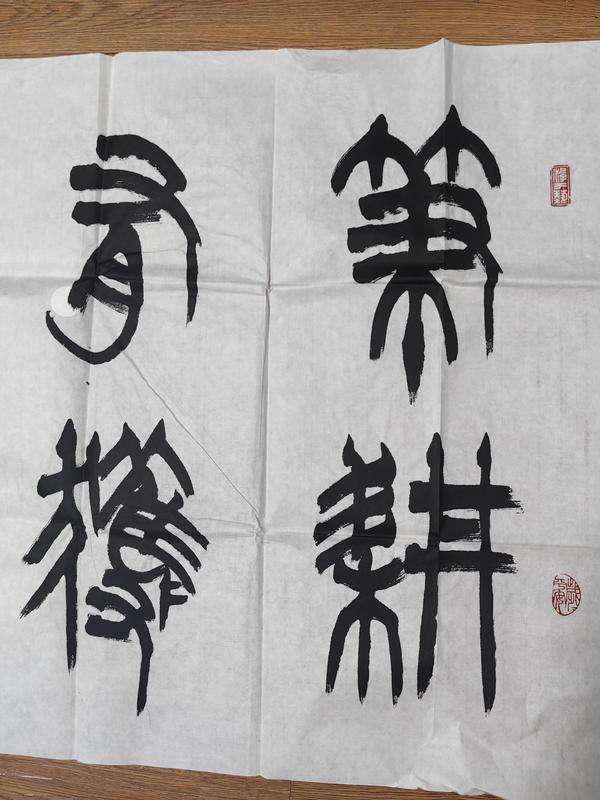 筆耕
有穫